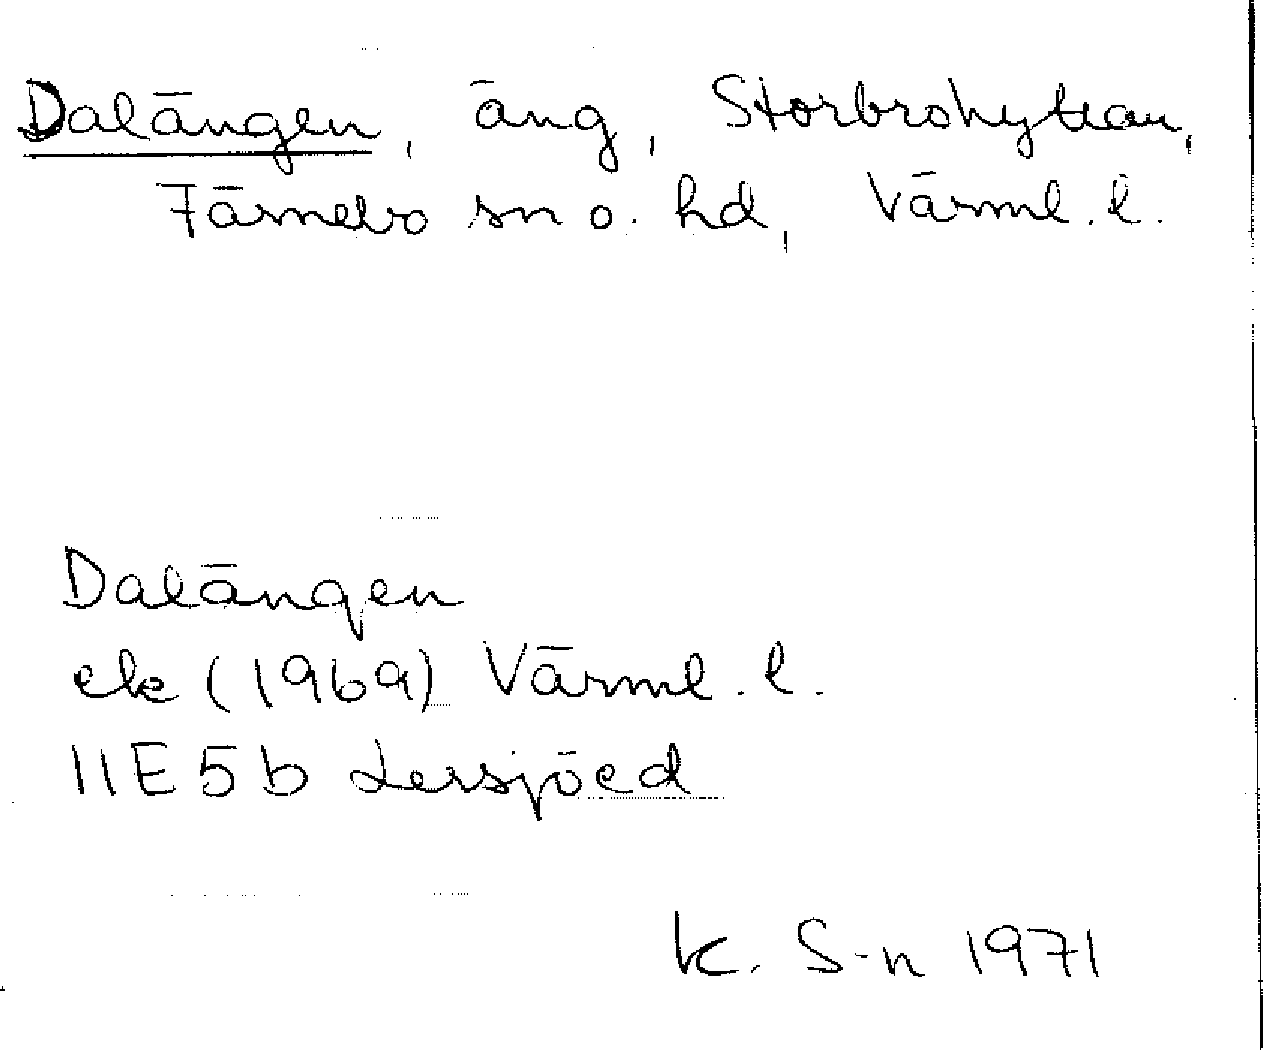 Dalängen, äng, Storbrohyttan,
Färnebo sn o. hd, Värml. l.
Dalängen
ek (1969) Värml. l.
11E 5b Lersjöed
K. S-n 1971